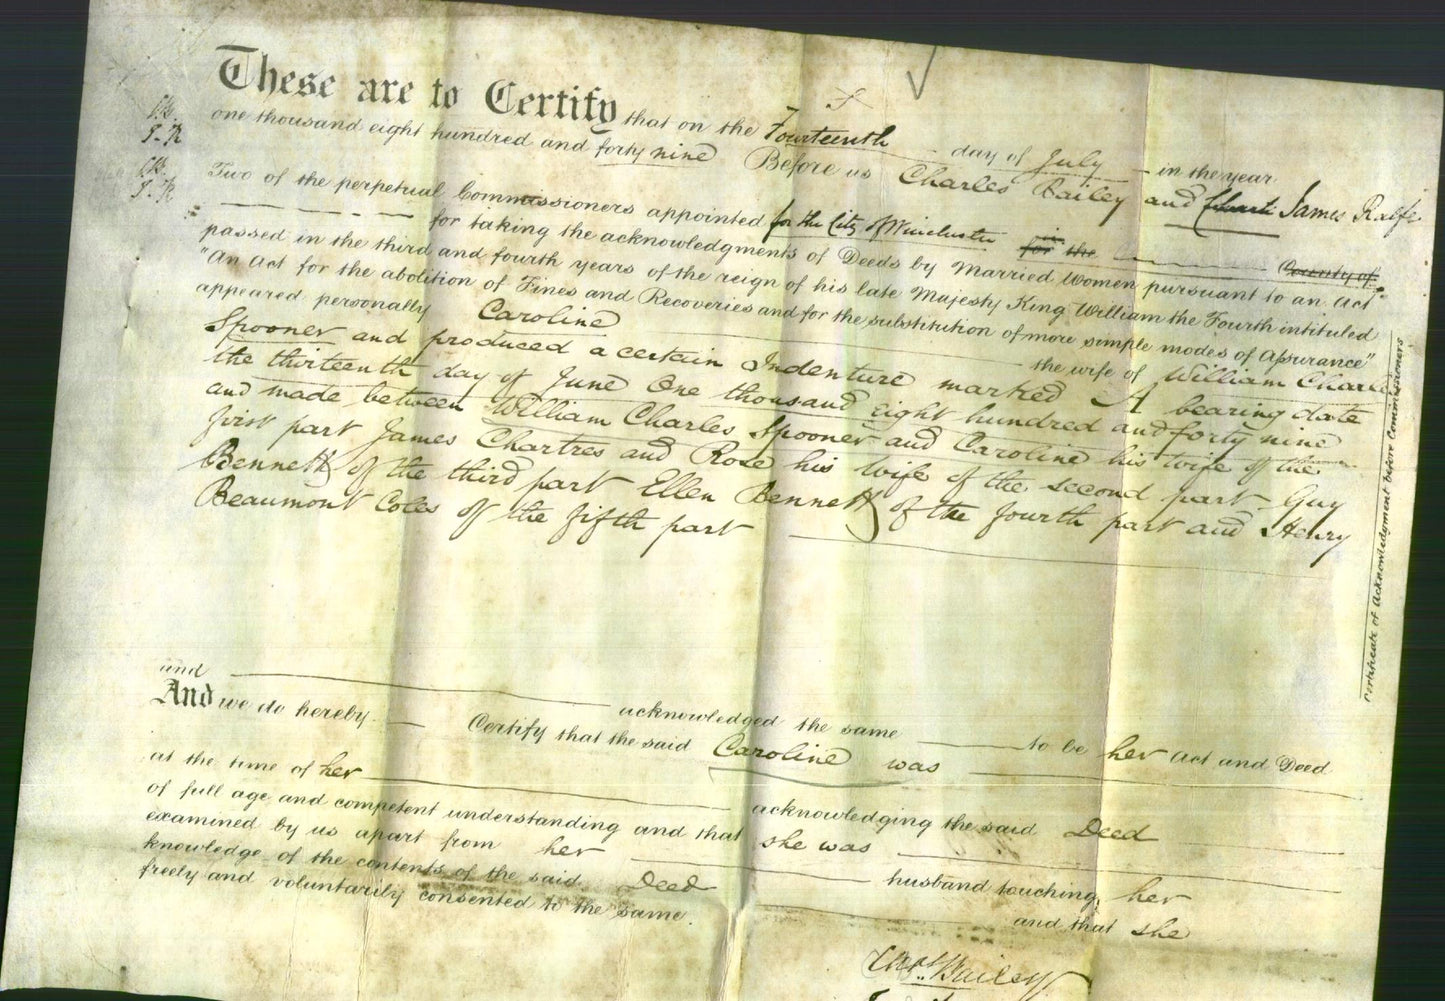 These are to Certify that on the Fourteenth day of July in the year
one thousand eight hundred and forty nine Before us Charles Bailey and James Ralfe
Two of the perpetual Commissioners appointed for the City of Winchester in for the County of
for taking the acknowledgments of Deeds by Married Women pursuant to an Act
passed in the third and fourth years of the reign of his late Majesty King William the Fourth intituled
"An Act for the abolition of Fines and Recoveries and for the substitution of more simple modes of Assurance"
appeared personally Caroline the wife of William Charles
Spooner and produced a certain Indenture marked A bearing date
the thirteenth day of June One thousand eight hundred and forty nine
and made between William Charles Spooner and Caroline his wife of the
first part James Chartres and Rose his wife of the second part Guy
Bennett of the third part Ellen Bennett of the fourth part and Henry
Beaumont Coles of the fifth part
and acknowledged the same to be her act and Deed
And we do hereby Certify that the said Caroline was
at the time of her acknowledging the said Deed
of full age and competent understanding and that she was
examined by us apart from her husband touching her
knowledge of the contents of the said Deed and that she
freely and voluntarily consented to the same.
Chas Bailey
Certificate of Acknowledgment before Commissioners